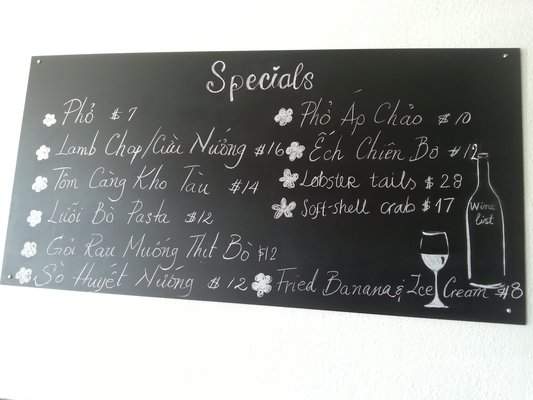 Specials
Phở $7
Lamb Chop/Cừu Nướng $16
Tôm Càng Kho Tàu $14
Lưỡi Bò Pasta $12
Gỏi Rau Muống Thịt Bò $12
Sò Huyết Nướng $12
Phở Áp Chảo $10
Ếch Chiên Bơ $12
Lobster tails $28
Soft-shell crab $17
Fried Banana & Ice Cream $8
Wine
list